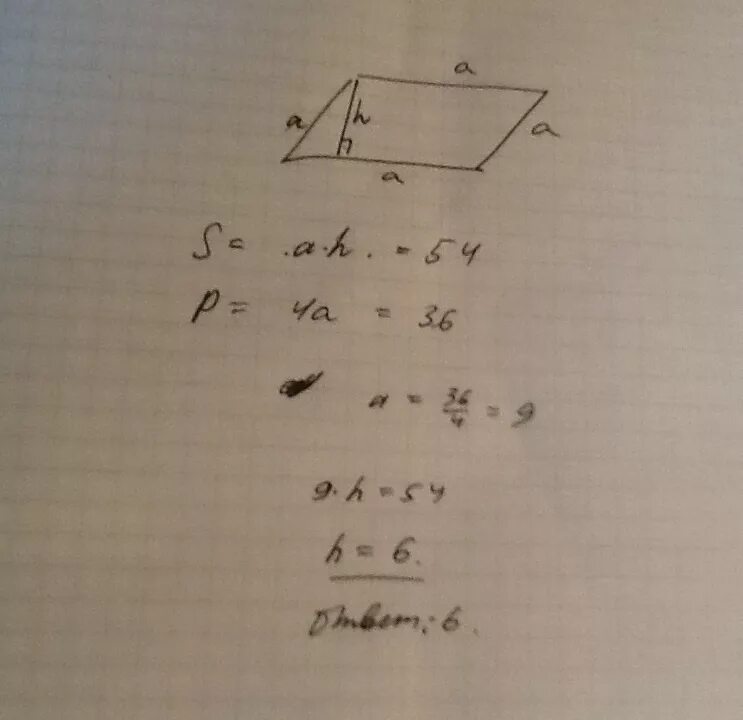 a
a h a
a
S = .a·h. = 54
P = 4a = 36
a = 36/4 = 9
9·h = 54
h = 6.
Ответ: 6.